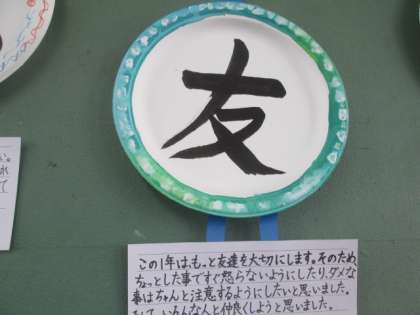 友
この1年は、もっと友達を大切にします。そのため、
ちょっとした事ですぐ怒らないようにしたり、ダメな
事はちゃんと注意するようにしたいと思いました。
そして、いろんな人と仲良くしようと思いました。